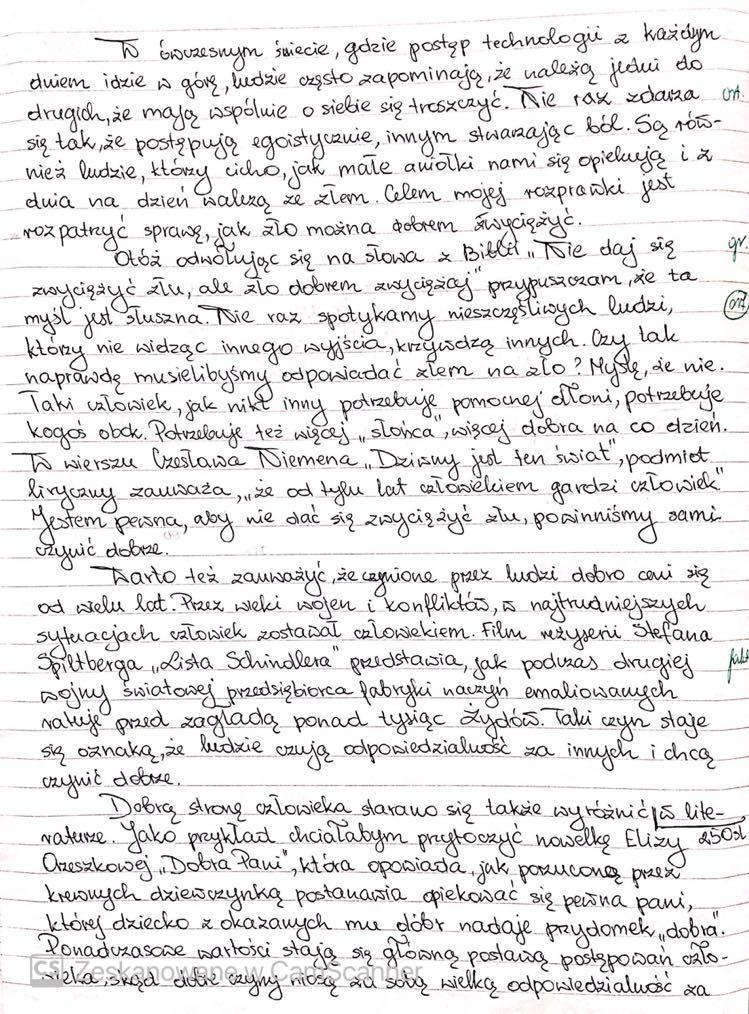 W ówczesnym świecie, gdzie postęp technologii z każdym
dniem idzie w górę, ludzie często zapominają, że należą jedni do
drugich, że mają wspólnie o siebie się troszczyć. Nie raz zdarza ort.
się tak, że postępują egoistycznie, innym stwarzając ból. Są rów-
nież ludzie, którzy cicho, jak małe aniołki nami się opiekują i z
dnia na dzień walczą ze złem. Celem mojej rozprawki jest
rozpatrzyć sprawę, jak zło można dobrem zwyciężyć.
Otóż odwołując się na słowa z Biblii „Nie daj się gr.
zwyciężyć złu, ale zło dobrem zwyciężaj" przypuszczam, że ta
myśl jest słuszna. Nie raz spotykamy nieszczęśliwych ludzi, ort.
którzy nie widząc innego wyjścia, krzywdzą innych. Czy tak
naprawdę musielibyśmy odpowiadać złem na zło? Myślę, że nie.
Taki człowiek, jak nikt inny potrzebuje pomocnej dłoni, potrzebuje
kogoś obok. Potrzebuje też więcej „słońca", więcej dobra na co dzień.
W wierszu Czesława Niemena „Dziwny jest ten świat", podmiot
liryczny zauważa, „że od tylu lat człowiekiem gardzi człowiek"
Jestem pewna, aby nie dać się zwyciężyć złu, powinniśmy sami
czynić dobrze.
Warto też zauważyć, że czynione przez ludzi dobro ceni się
od wielu lat. Przez wieki wojen i konfliktów, w najtrudniejszych
sytuacjach człowiek zostawał człowiekiem. Film reżyserii Stefana
Spiltberga „Lista Schindlera" przedstawia, jak podczas drugiej
wojny światowej przedsiębiorca fabryki naczyń emaliowanych
ratuje przed zagładą ponad tysiąc Żydów. Taki czyn staje
się oznaką, że ludzie czują odpowiedzialność za innych i chcą
czynić dobrze.
Dobrą stronę człowieka starano się także wyróżnić w lite-
raturze. Jako przykład chciałabym przytoczyć nowelkę Elizy 250sł
Orzeszkowej „Dobra Pani", która opowiada, jak porzuconą przez
krewnych dziewczynką postanawia opiekować się pewna pani,
której dziecko z okazanych mu dóbr nadaje przydomek „dobra".
Ponadczasowe wartości stają się główną postawą postępowań czło-
wieka, skąd dobre czyny niosą za sobą wielką odpowiedzialność za
CS Zeskanowane w CamScanner